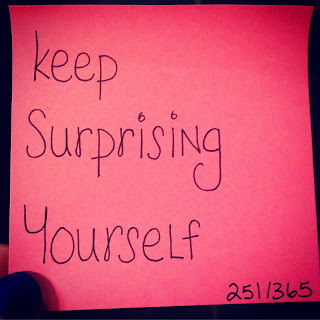 keep
Surprising
Yourself
251/365